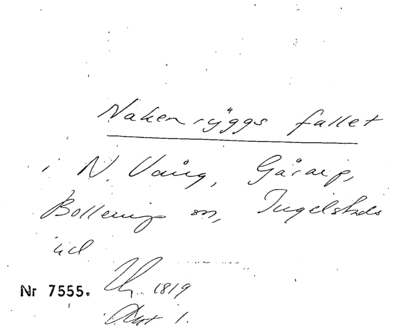 Nakenryggs fallet
i N. Vång, Gårarp,
Bollerup sn, Ingelstads
hd
Nr 7555. 1819
Akt 1.